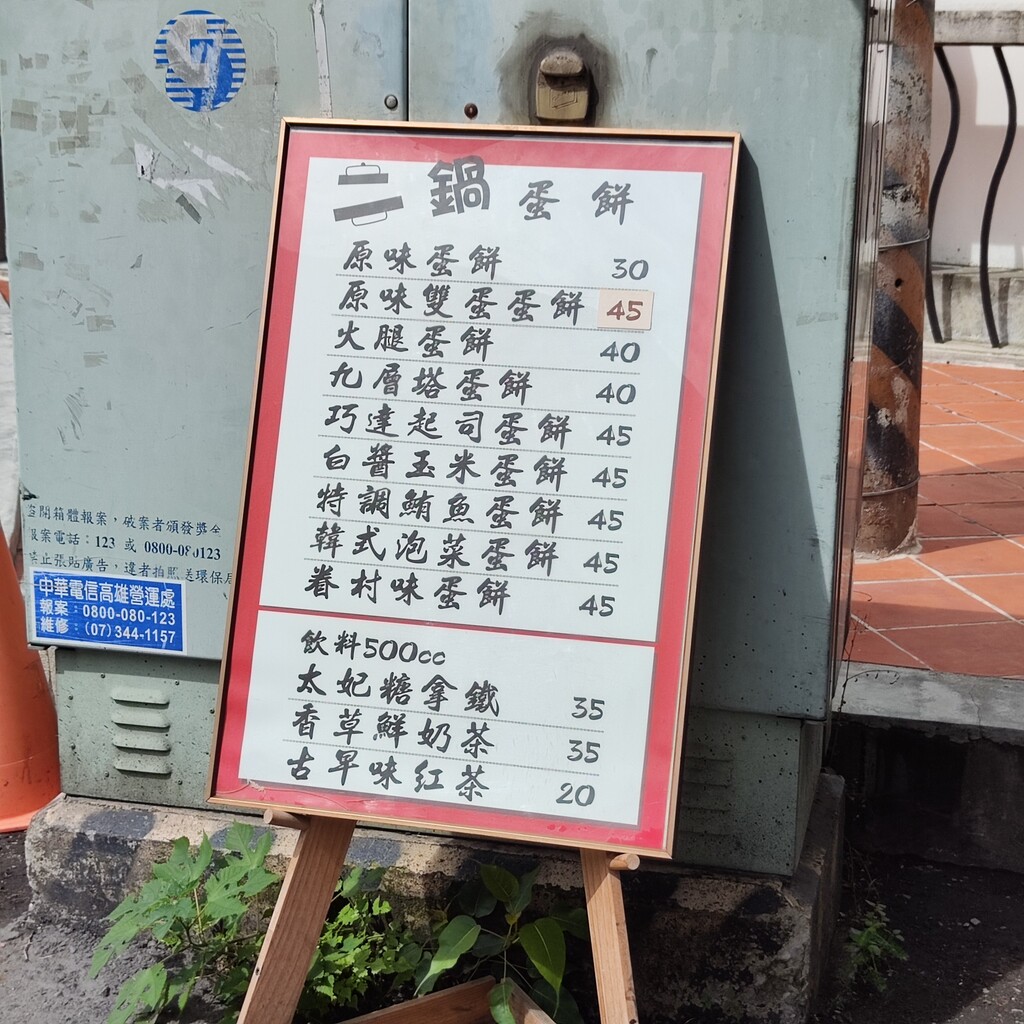 二鍋蛋餅
原味蛋餅 30
原味雙蛋蛋餅 45
火腿蛋餅 40
九層塔蛋餅 40
巧達起司蛋餅 45
白醬玉米蛋餅 45
特調鮪魚蛋餅 45
韓式泡菜蛋餅 45
眷村味蛋餅 45
飲料500cc
太妃糖拿鐵 35
香草鮮奶茶 35
古早味紅茶 20
開箱體報案，破案者頒發獎金
報案電話：123 或 0800-080123
禁止張貼廣告，違者拍照送環保局
中華電信高雄營運處
報案：0800-080-123
維修：(07)344-1157